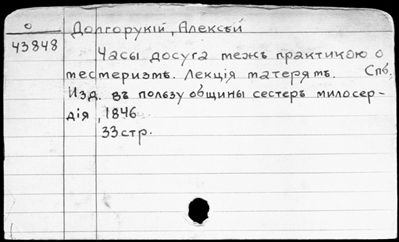 О
Долгорукій, Алексѣй
43848
Часы досуга межъ практикаю о
месмеризмѣ. Лекція матерямъ. Спб.
Изд. въ пользу общины сестеръ милосер-
дія, 1846
33 стр.